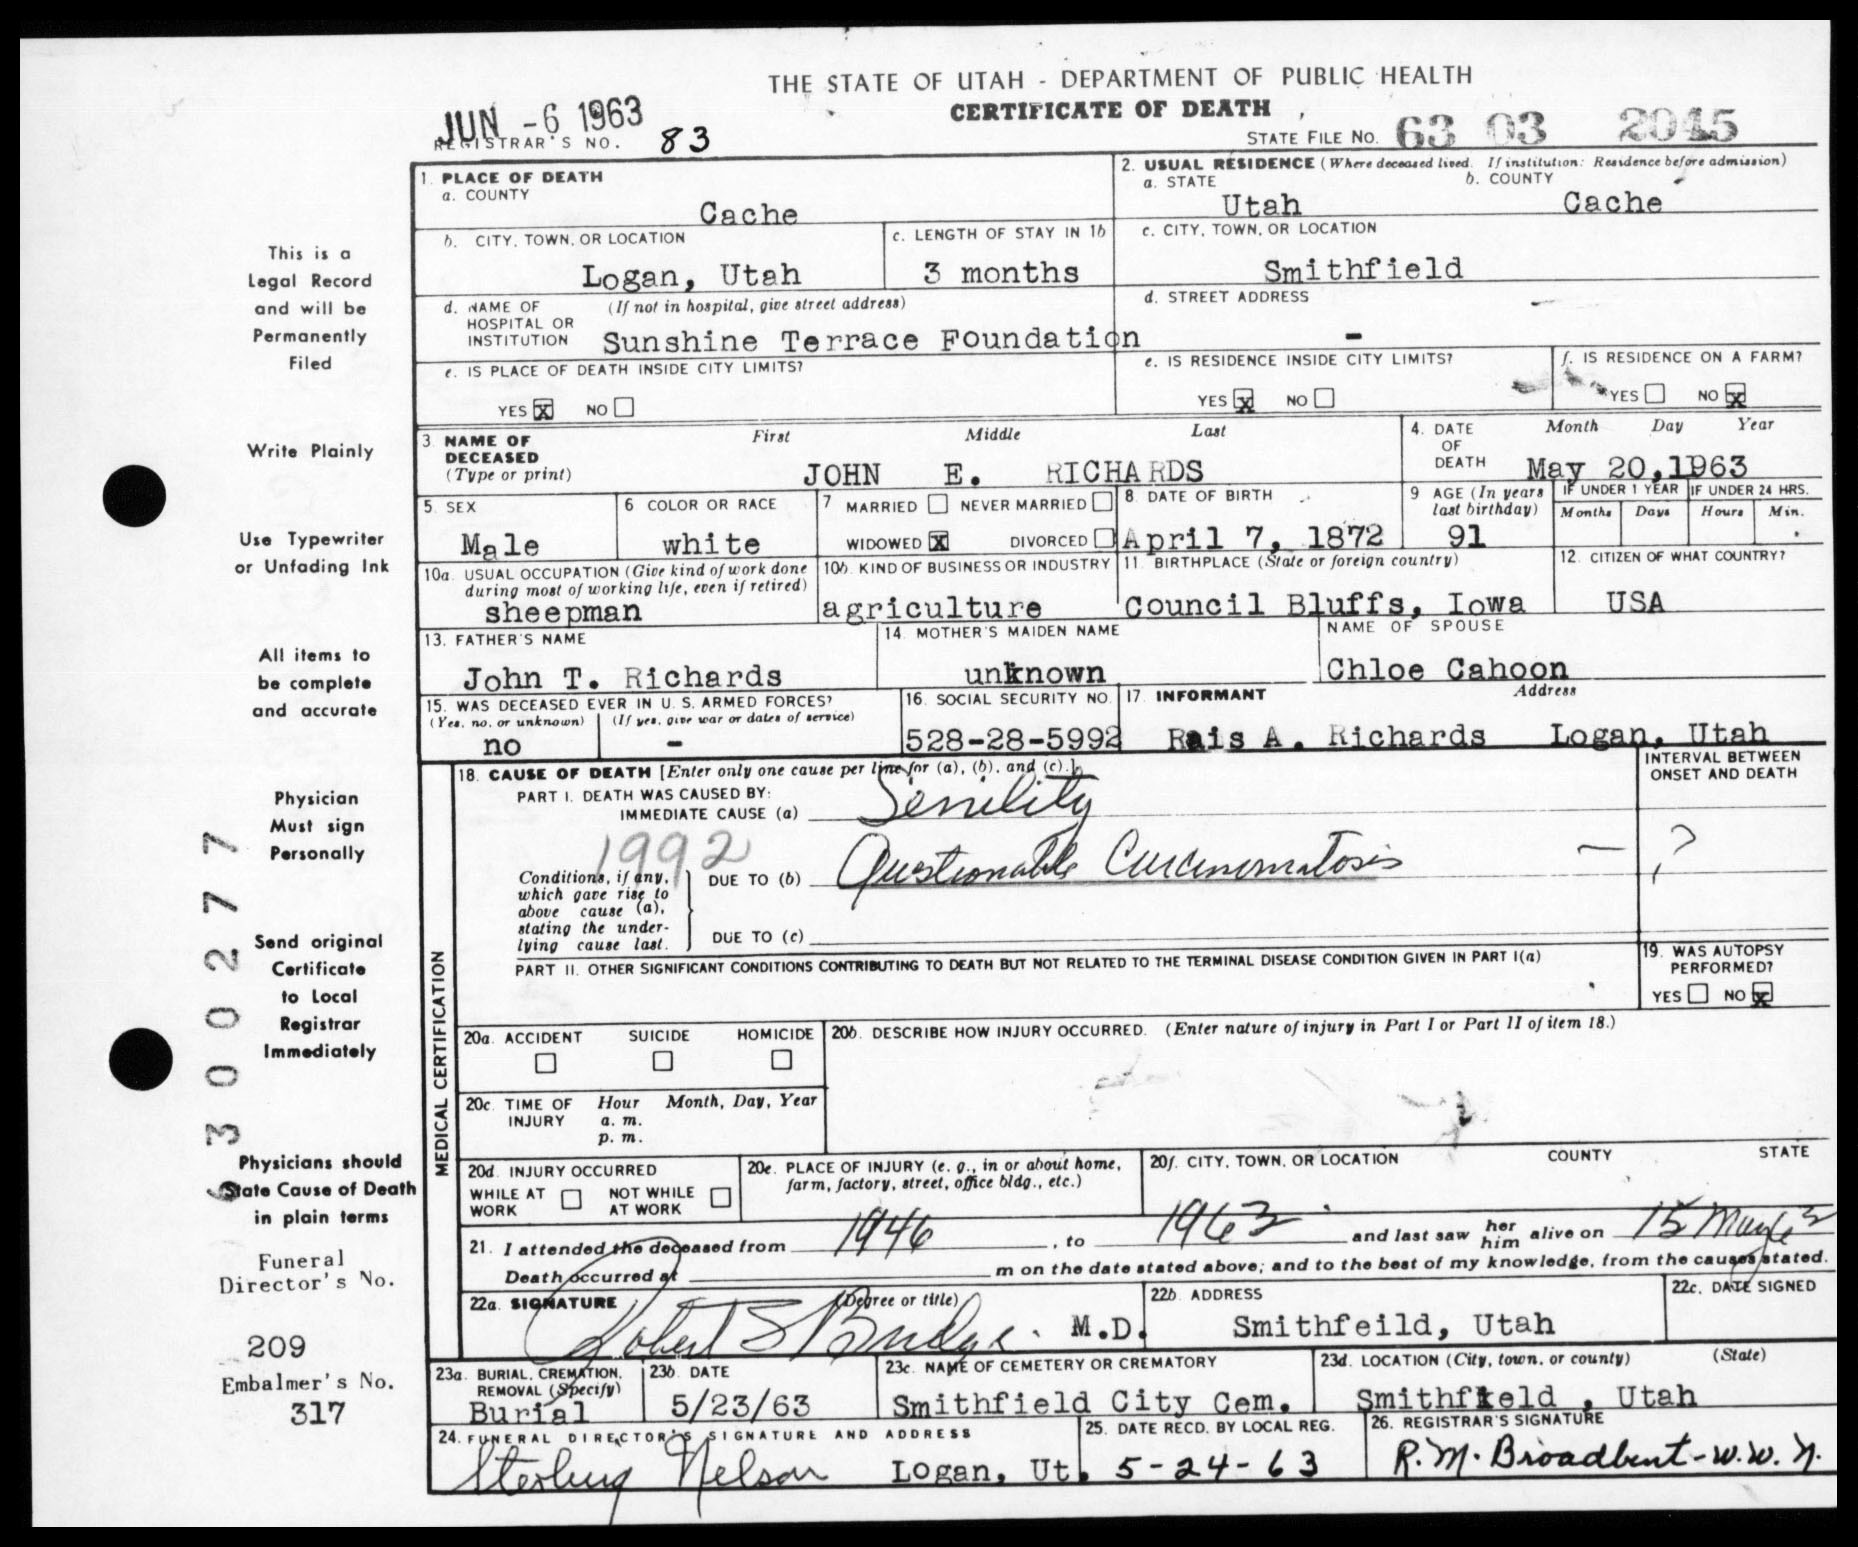 THE STATE OF UTAH - DEPARTMENT OF PUBLIC HEALTH
CERTIFICATE OF DEATH
JUN -6 1963
REGISTRAR'S NO. 83
STATE FILE NO. 63 03 2045
1. PLACE OF DEATH
a. COUNTY
Cache
2. USUAL RESIDENCE (Where deceased lived. If institution: Residence before admission)
a. STATE b. COUNTY
Utah Cache
b. CITY, TOWN, OR LOCATION
Logan, Utah
c. LENGTH OF STAY IN 1b
3 months
c. CITY, TOWN, OR LOCATION
Smithfield
d. NAME OF HOSPITAL OR INSTITUTION (If not in hospital, give street address)
Sunshine Terrace Foundation
d. STREET ADDRESS
-
e. IS PLACE OF DEATH INSIDE CITY LIMITS?
YES X NO
e. IS RESIDENCE INSIDE CITY LIMITS?
YES X NO
f. IS RESIDENCE ON A FARM?
YES NO X
3 NAME OF DECEASED (Type or print)
First Middle Last
JOHN E. RICHARDS
4. DATE OF DEATH
Month Day Year
May 20,1963
5. SEX
Male
6 COLOR OR RACE
white
7 MARRIED NEVER MARRIED
WIDOWED X DIVORCED
8 DATE OF BIRTH
April 7, 1872
9 AGE (In years last birthday)
91
IF UNDER 1 YEAR
Months Days
IF UNDER 24 HRS.
Hours Min.
10a. USUAL OCCUPATION (Give kind of work done during most of working life, even if retired)
sheepman
10b. KIND OF BUSINESS OR INDUSTRY
agriculture
11. BIRTHPLACE (State or foreign country)
Council Bluffs, Iowa
12. CITIZEN OF WHAT COUNTRY?
USA
13. FATHER'S NAME
John T. Richards
14. MOTHER'S MAIDEN NAME
unknown
NAME OF SPOUSE
Chloe Cahoon
15. WAS DECEASED EVER IN U. S. ARMED FORCES?
(Yes, no, or unknown) (If yes, give war or dates of service)
no -
16. SOCIAL SECURITY NO.
528-28-5992
17. INFORMANT Address
Rais A. Richards Logan, Utah
MEDICAL CERTIFICATION
18. CAUSE OF DEATH [Enter only one cause per line for (a), (b), and (c).]
INTERVAL BETWEEN ONSET AND DEATH
PART I. DEATH WAS CAUSED BY:
IMMEDIATE CAUSE (a) Senility
1992
Conditions, if any, which gave rise to above cause (a), stating the underlying cause last.
DUE TO (b) Questionable Carcinomatosis - ?
DUE TO (c)
PART II. OTHER SIGNIFICANT CONDITIONS CONTRIBUTING TO DEATH BUT NOT RELATED TO THE TERMINAL DISEASE CONDITION GIVEN IN PART I(a)
19. WAS AUTOPSY PERFORMED?
YES NO X
20a. ACCIDENT SUICIDE HOMICIDE
20b. DESCRIBE HOW INJURY OCCURRED. (Enter nature of injury in Part I or Part II of item 18.)
20c. TIME OF INJURY Hour Month, Day, Year
a. m.
p. m.
20d. INJURY OCCURRED
WHILE AT WORK NOT WHILE AT WORK
20e. PLACE OF INJURY (e. g., in or about home, farm, factory, street, office bldg., etc.)
20f. CITY, TOWN, OR LOCATION COUNTY STATE
21. I attended the deceased from 1946, to 1963 and last saw her him alive on 15 May 63
Death occurred at m on the date stated above; and to the best of my knowledge, from the causes stated.
22a. SIGNATURE (Degree or title)
Robert S Budge. M.D.
22b. ADDRESS
Smithfeild, Utah
22c. DATE SIGNED
23a. BURIAL, CREMATION, REMOVAL (Specify)
Burial
23b. DATE
5/23/63
23c. NAME OF CEMETERY OR CREMATORY
Smithfield City Cem.
23d. LOCATION (City, town, or county) (State)
Smithfield, Utah
24. FUNERAL DIRECTOR'S SIGNATURE AND ADDRESS
Sterling Nelson Logan, Ut.
25. DATE RECD. BY LOCAL REG.
5-24-63
26. REGISTRAR'S SIGNATURE
R.M. Broadbent-W.W.N.
This is a
Legal Record
and will be
Permanently
Filed
Write Plainly
Use Typewriter
or Unfading Ink
All items to
be complete
and accurate
Physician
Must sign
Personally
Send original
Certificate
to Local
Registrar
Immediately
Physicians should
State Cause of Death
in plain terms
Funeral
Director's No.
209
Embalmer's No.
317
6300277